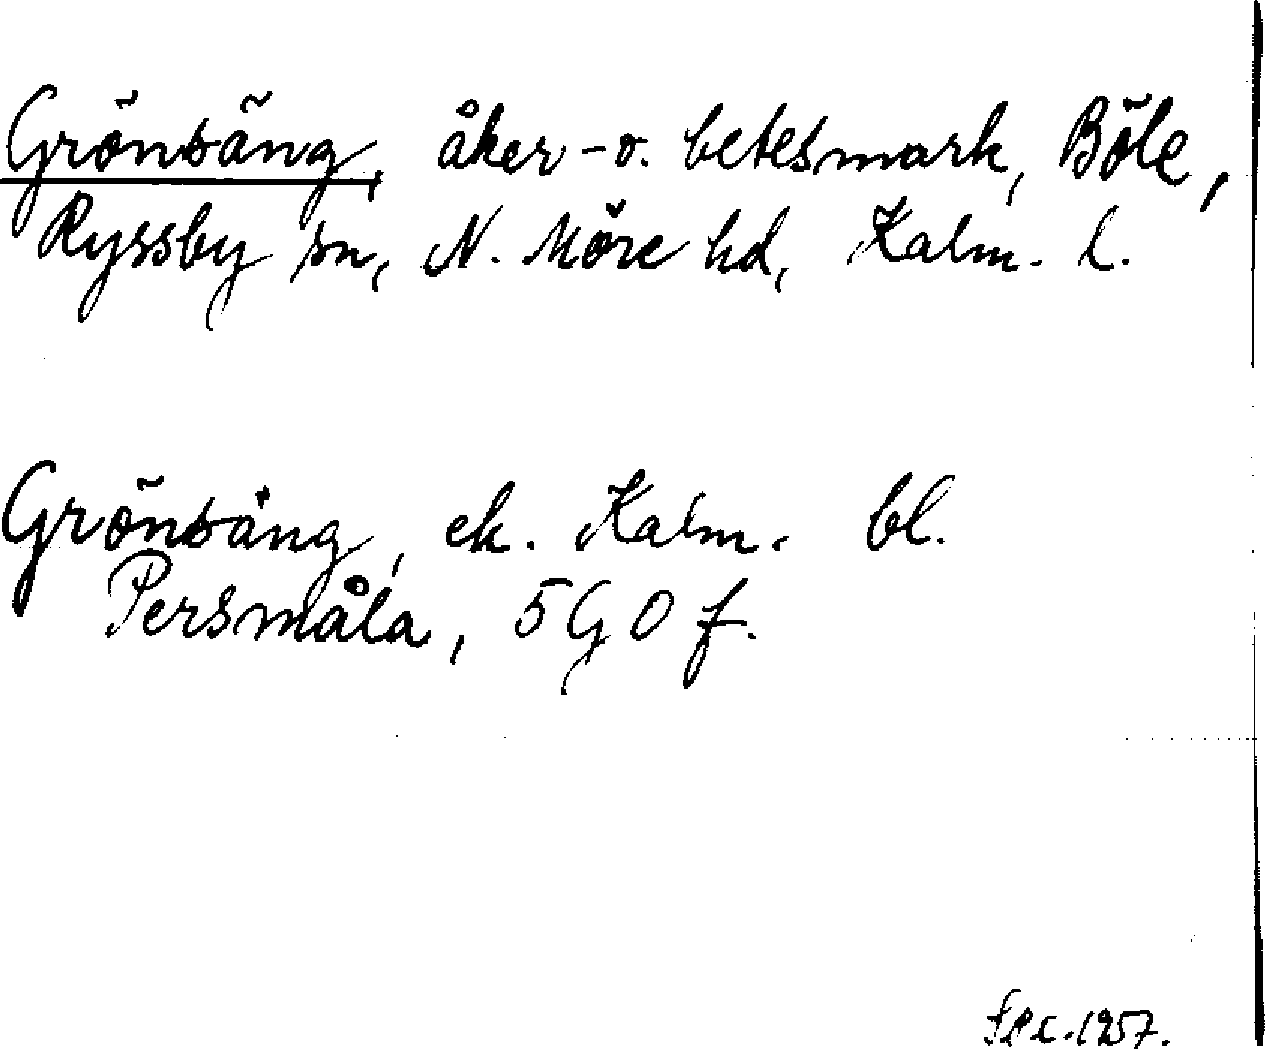 Grönsäng, åker- o. betesmark, Böle,
Ryssby sn, N. Möre hd, Kalm. l.
Grönsäng, ek. Kalm. bl.
Persmåla, 5 G O f.
1957.